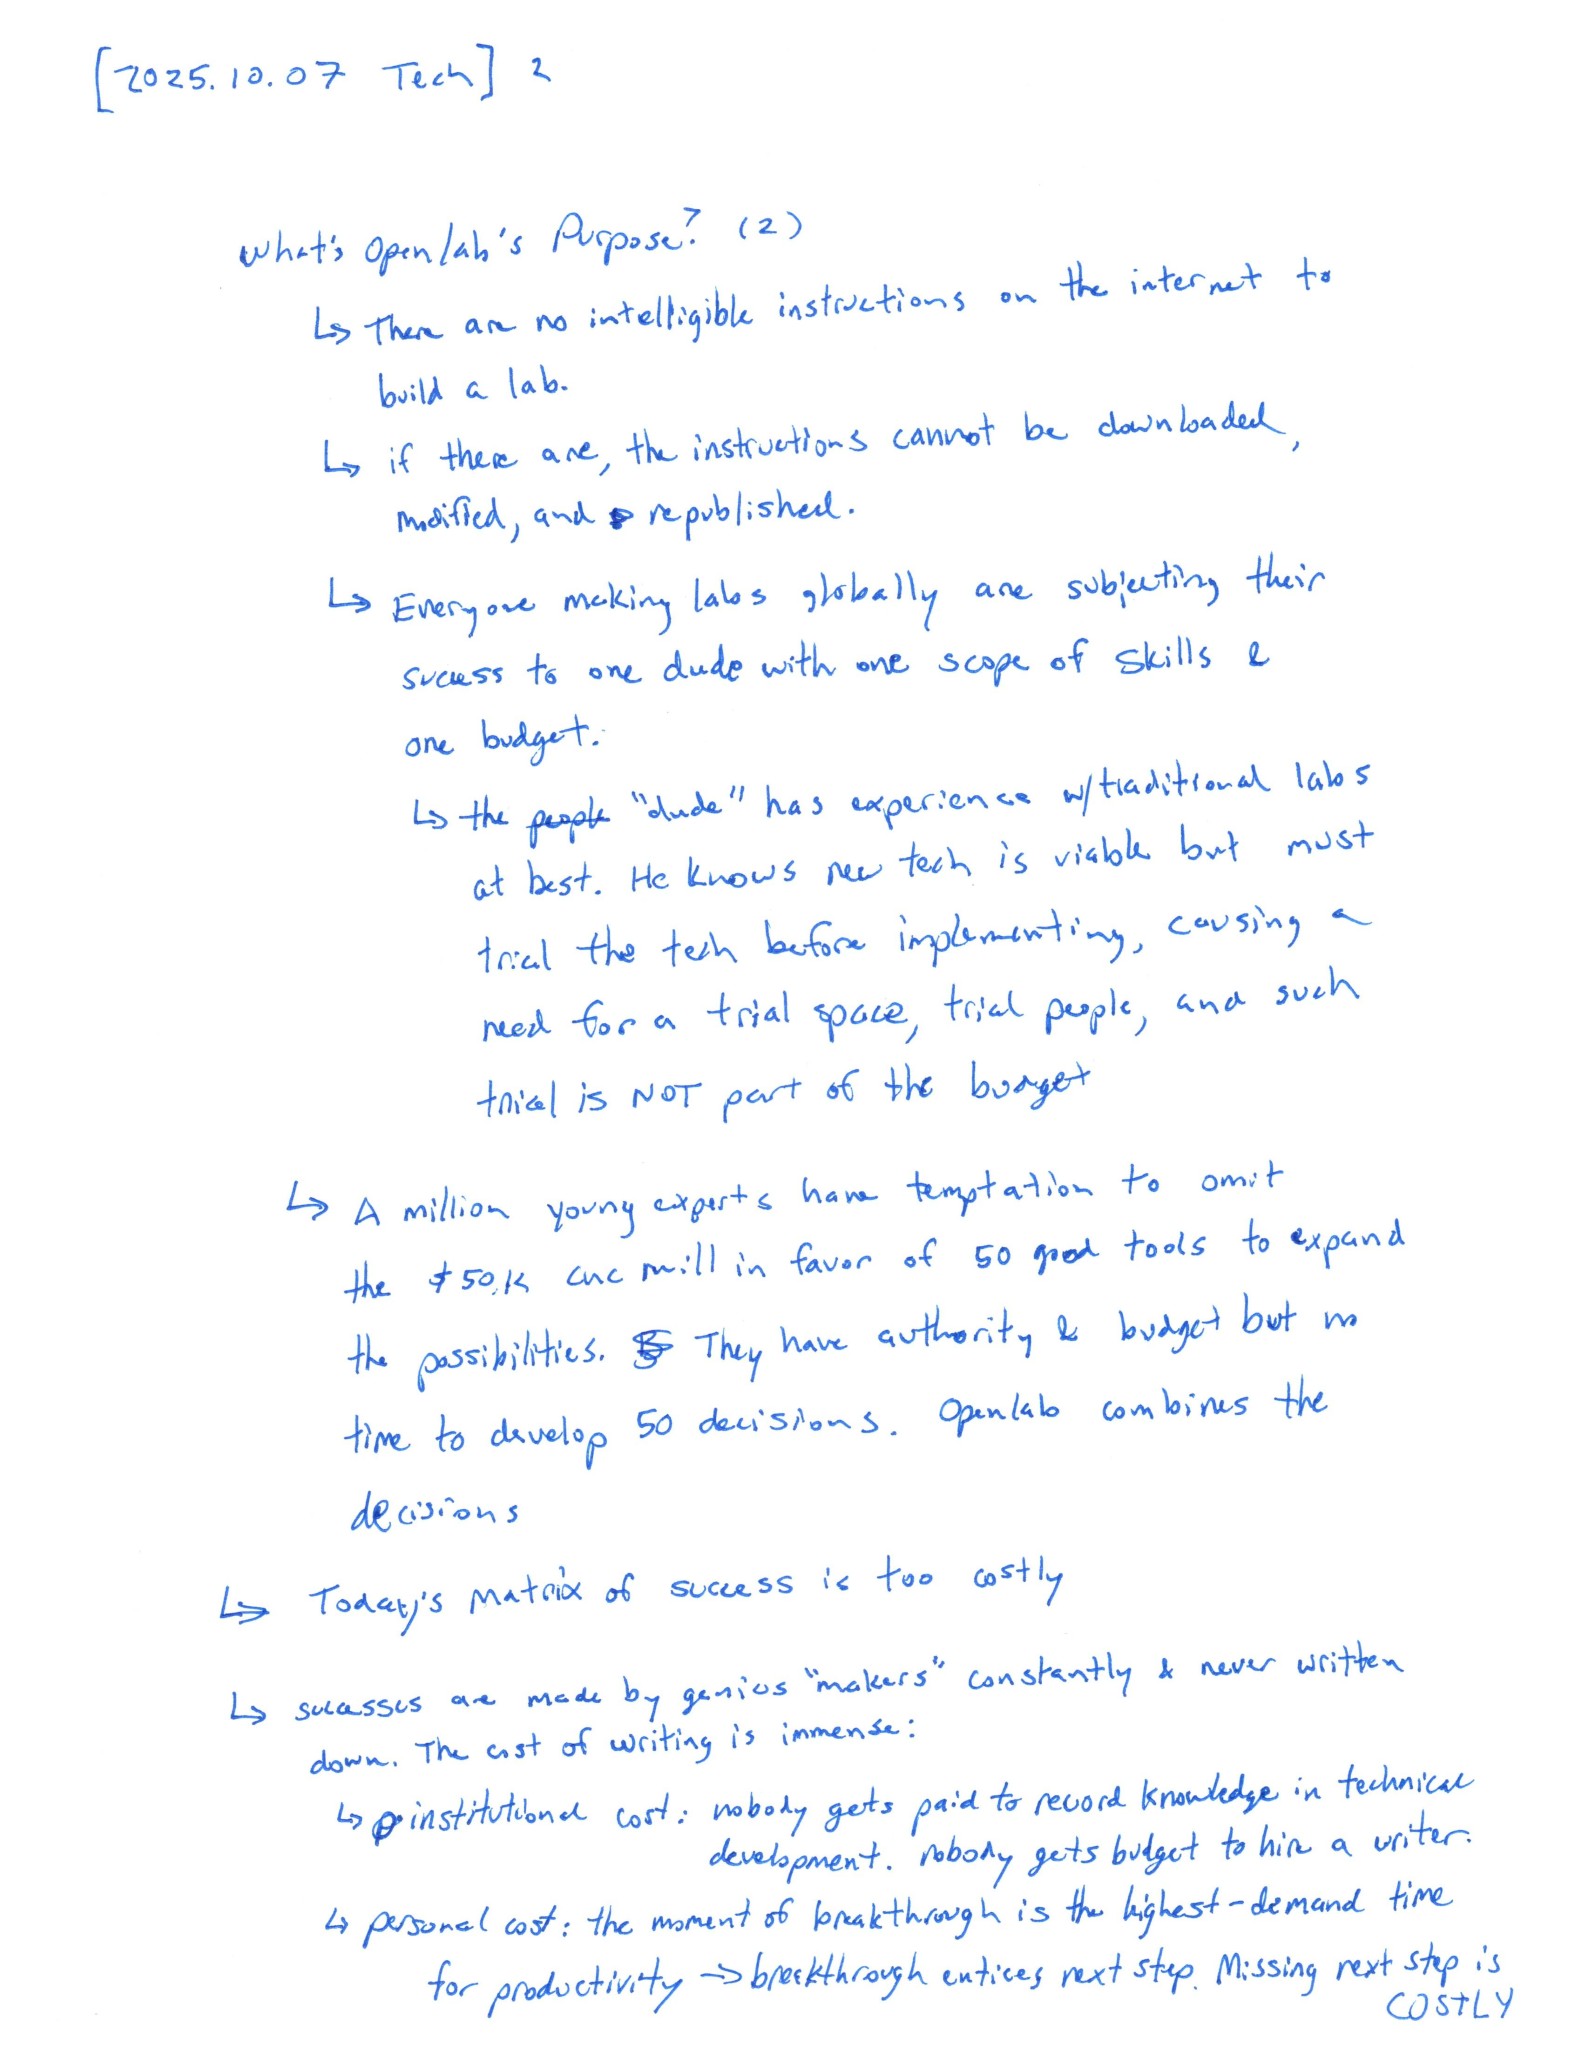 [2025.10.07 Tech] 2
What's Openlab's Purpose? (2)
↳ There are no intelligible instructions on the internet to
build a lab.
↳ if there are, the instructions cannot be downloaded,
modified, and republished.
↳ Everyone making labs globally are subjecting their
success to one dude with one scope of skills &
one budget.
↳ the people "dude" has experience w/traditional labs
at best. He knows new tech is viable but must
trial the tech before implementing, causing a
need for a trial space, trial people, and such
trial is NOT part of the budget
↳ A million young experts have temptation to omit
the $50K cnc mill in favor of 50 good tools to expand
the possibilities. They have authority & budget but no
time to develop 50 decisions. Openlab combines the
decisions
↳ Today's Matrix of success is too costly
↳ successes are made by genius "makers" constantly & never written
down. The cost of writing is immense:
↳ institutional cost: nobody gets paid to record knowledge in technical
development. nobody gets budget to hire a writer.
↳ personal cost: the moment of breakthrough is the highest-demand time
for productivity → breakthrough entices next step. Missing next step is
COSTLY